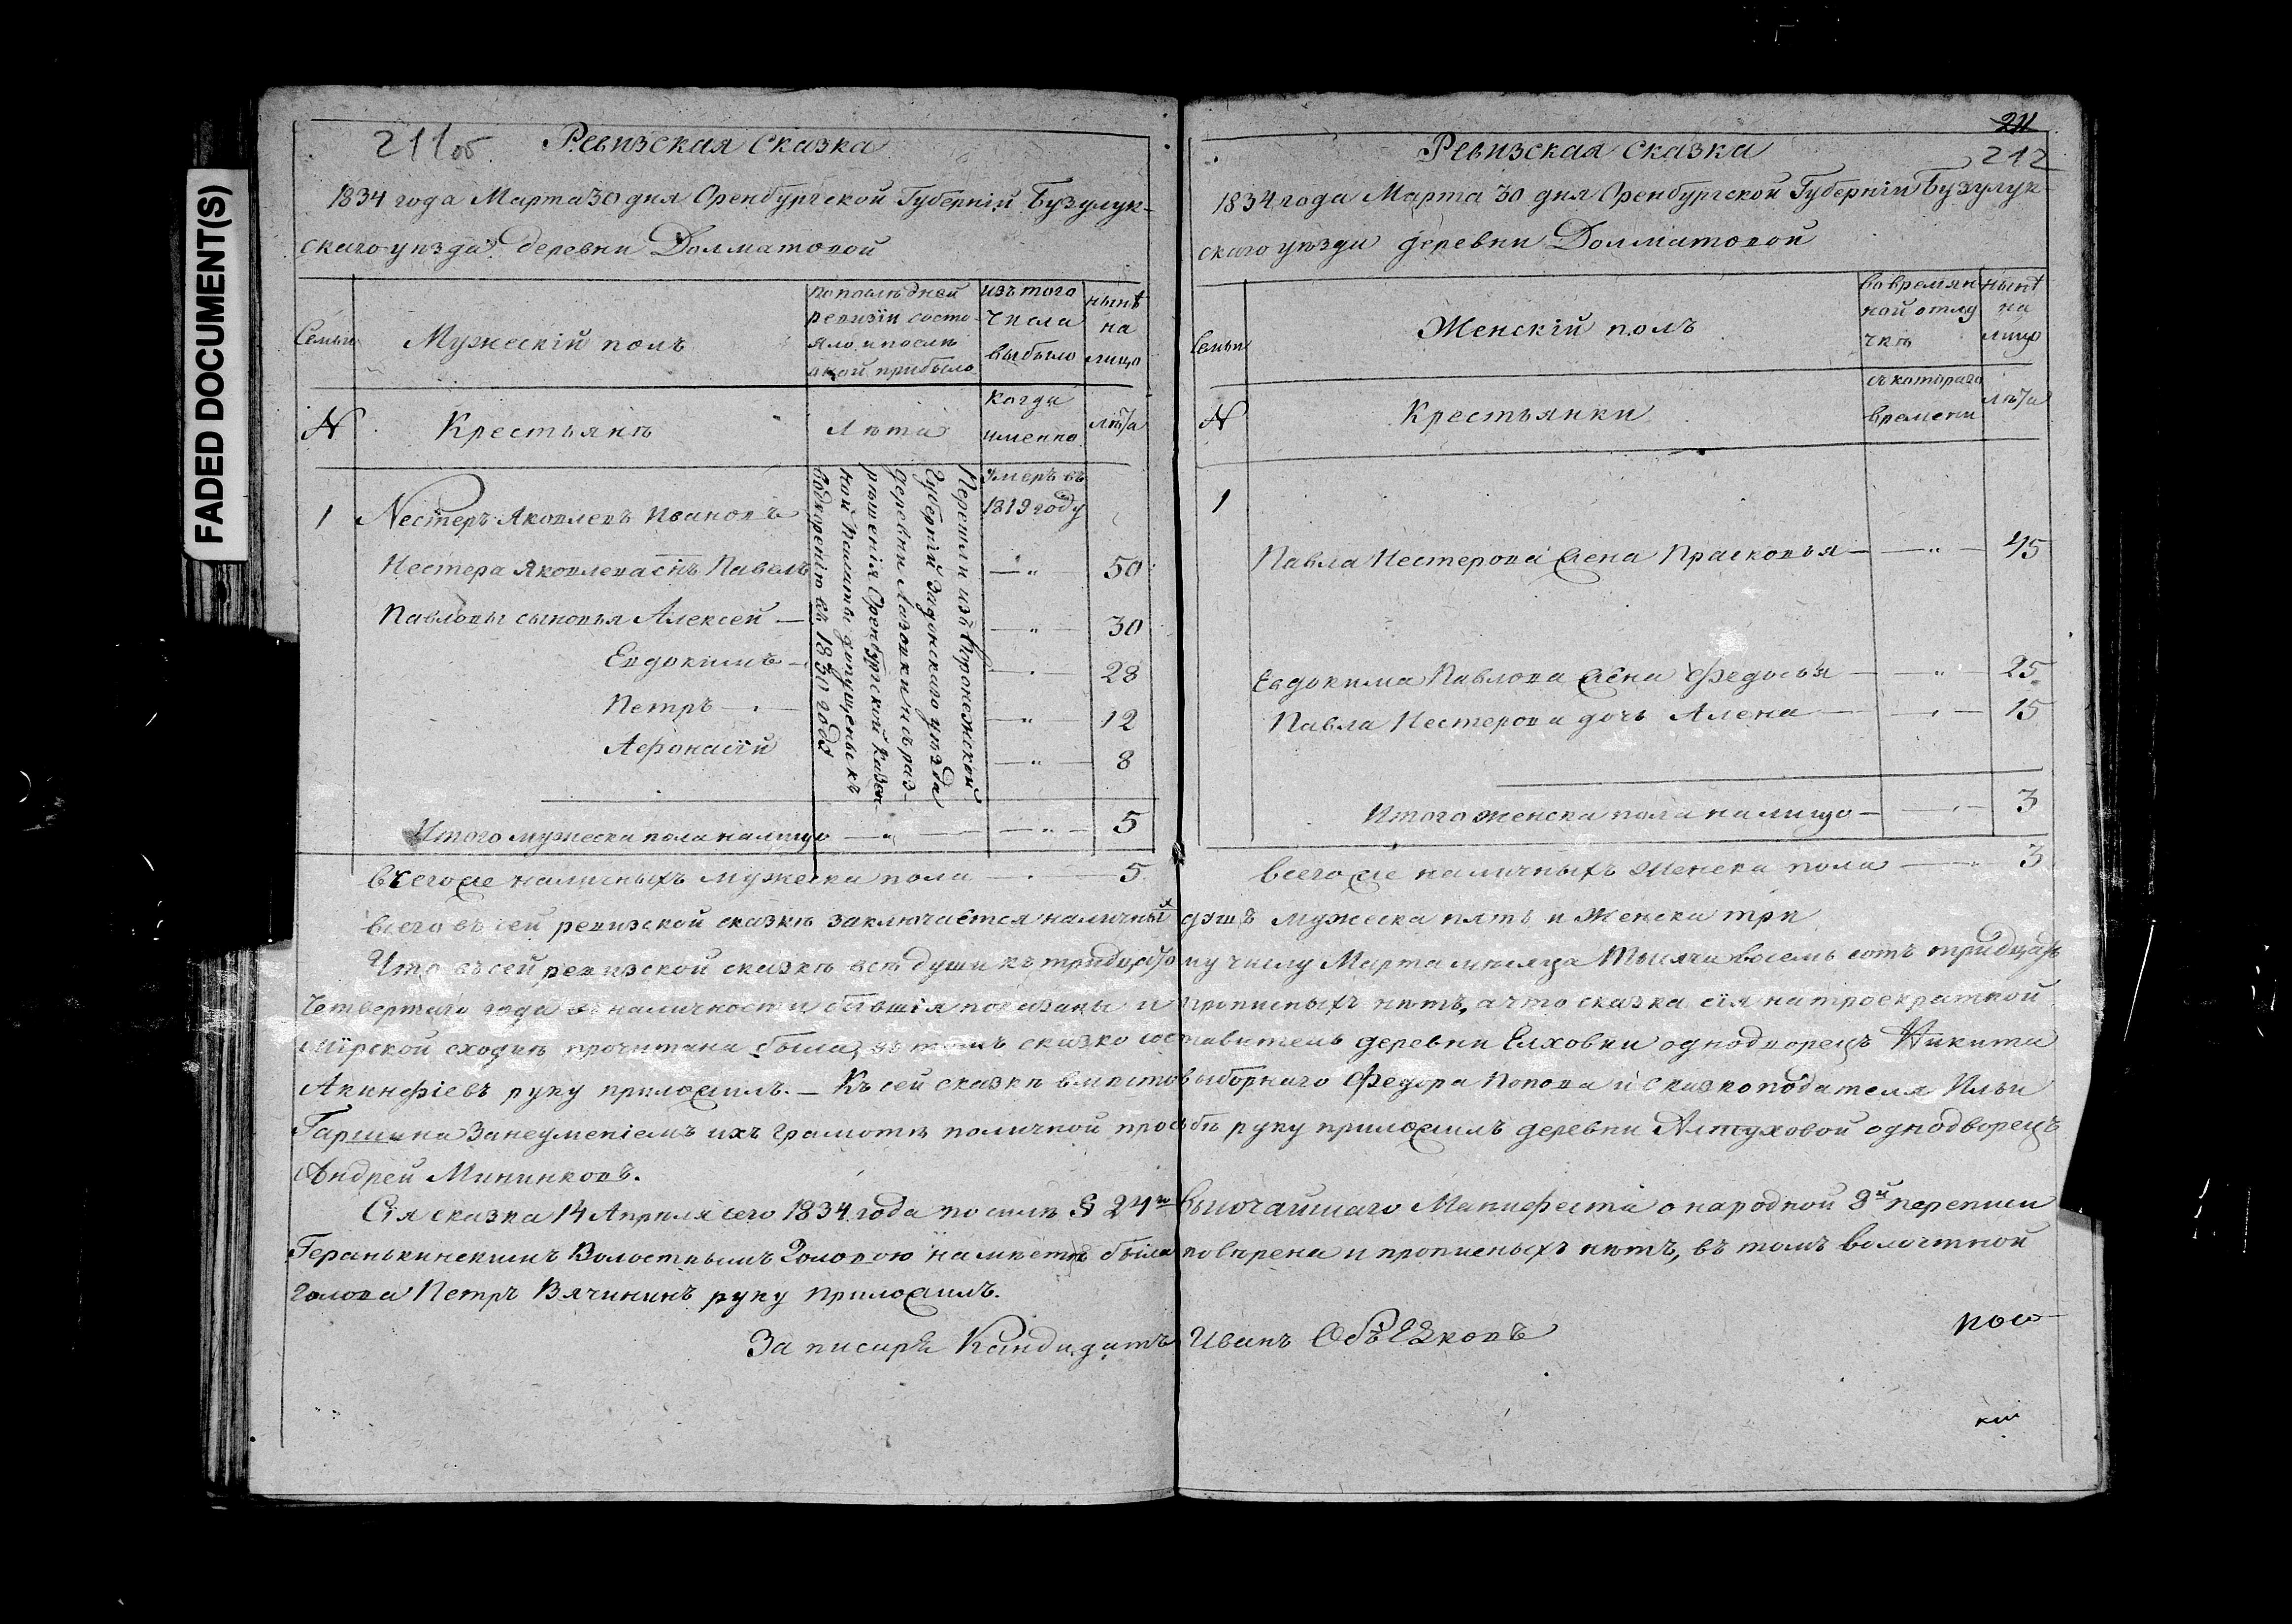 FADED DOCUMENT(S)
211об
Ревизская сказка
1834 года Марта 30 дня Оренбургской Губернїй Бузулук-
скаго уѣзда деревни Долматовой
Семьи
Мужескїй полъ
по послѣдней
ревизїи состо
яло и послѣ
оной прибыло
изъ того
числа
выбыло
нынѣ
на
лицо
№
Крестьянѣ
Лѣта
когда
именно
лѣта
1
Нестеръ Яковлевъ Ивановъ
Умеръ въ
1819 году
Нестера Яковлева сн҃ъ Павелъ
— „
50
Павловы сыновья Алексей —
— „ —
30
Евдокимъ —
— . —
28
Петръ — . —
— „ —
12
Афонасїй
— „ —
8
Перешли изъ Воронежской
Губернїй Задонскаго уѣзда
деревни Лазовки и съ раз-
рѣшенїя Оренбургской Казен-
ной Палаты допущены къ
водворенїю въ 1830 года
Итого мужеска пола налицо — „ — — „ — 5
всего же наличныхъ мужеска пола — . — 5
211
212
Ревизская сказка
1834 года Марта 30 дня Оренбургской Губернїи Бузулук-
скаго уѣзда деревни Долматовой
Семьи
Женскїй полъ
во времян
ной отлу
чкѣ
нынѣ
на
лицо
№
Крестьянки
съ котораго
времени
лѣта
1
Павла Нестерова жена Прасковья — — „ — 45
Евдокима Павлова жена Федосья — — „ — 25
Павла Нестерова дочь Алена — — . — 15
Итого женска пола на лицо — — . — 3
Всего же наличныхъ женска пола — „ 3
всего въ сей ревизской сказкѣ заключается наличныхъ душъ мужеска пять и женска три
Что въ сей ревизской сказкѣ всѣ души къ тридцатому числу Марта мѣсяца Тысяча восемь сотъ тридцать
четвертаго года въ наличности бывшїя показаны и прописныхъ нѣтъ, а что сказка сїя на троекратной
мїрской сходкѣ прочитана была, въ томъ сказко составитель деревни Елховки однодворецъ Никита
Акинфїевъ руку приложилъ. — Къ сей сказкѣ вместо выборнаго Федора Попова и сказкоподателя Ильи
Гаршина за неуменїемъ ихъ грамотѣ по личной просьбѣ руку приложилъ деревни Алтуховой однодворецъ
Андрей Мининковъ.
Сїя сказка 14 Апреля сего 1834 года по силѣ § 24го Высочайшаго Манифеста о народной 8й переписи
Геранькинскимъ Волостнымъ Головою на местѣ была поверена и прописныхъ нѣтъ, въ томъ волостной
голова Петръ Вячининъ руку приложилъ.
За писаря Кандидатъ Иванъ Объѣдковъ